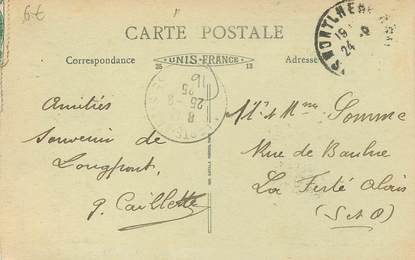 6-t
CARTE POSTALE
Correspondance
UNIS-FRANCE
Adresse
25
13
MONTLHÉRY
19
24
16
25-8
25
8
Amitiés
souvenir de
Longpont,
g. Caillette
Mr et Mme Somme
Rue de Baulne
La Ferté Alais
(S et O)